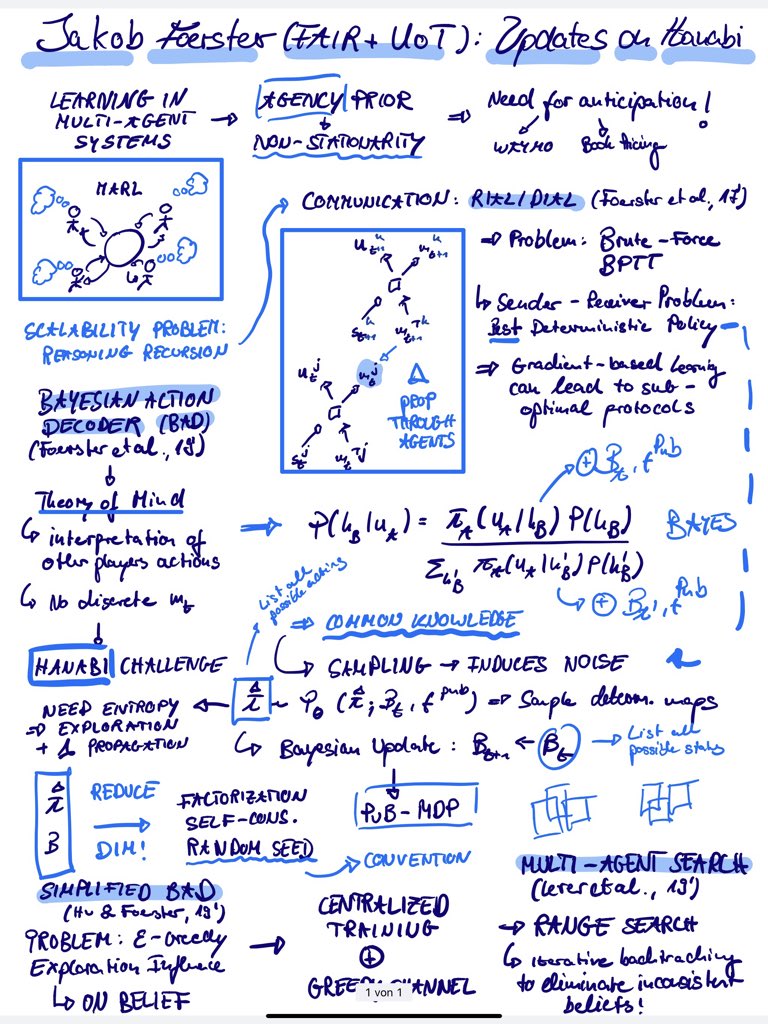 Jakob Foerster (FAIR + UoT): Updates on Hanabi
LEARNING IN
MULTI-AGENT
SYSTEMS
→ AGENCY PRIOR
NON-STATIONARITY
⇒ Need for anticipation!
WAYMO
Book Pricing
MARL
COMMUNICATION: RIAL/DIAL (Foerster et al., 17')
⇒ Problem: Brute-Force
BPTT
↳ Sender-Receiver Problem:
Best Deterministic Policy
⇒ Gradient-based Learning
can lead to sub-
optimal protocols
SCALABILITY PROBLEM:
REASONING RECURSION
Δ
PROP
THROUGH
AGENTS
BAYESIAN ACTION
DECODER (BAD)
(Foerster et al., 19')
Theory of Mind
↳ interpretation of
other players actions
↳ No discrete m_t
⇒ P(h_B|u_A) = π_A(u_A|h_B) P(h_B)
Σ_{h'_B} π_A(u_A|h'_B) P(h'_B)
BAYES
⊕ B_t, f^Pub
⊕ B_t', f^Pub
List all
possible actions
⇒ COMMON KNOWLEDGE
HANABI CHALLENGE
SAMPLING → INDUCES NOISE
NEED ENTROPY
⇒ EXPLORATION
+ Δ PROPAGATION
π̂ ~ P_θ (π̂; B_t, f^pub) ⇒ Sample determ. maps
↳ Bayesian Update: B_{t+1} ← B_t → List all
possible states
π̂
B
REDUCE
DIM!
FACTORIZATION
SELF-CONS.
RANDOM SEED
PuB-MDP
CONVENTION
SIMPLIFIED BAD
(Hu & Foerster, 19')
PROBLEM: ε-Greedy
Exploration Influence
↳ ON BELIEF
CENTRALIZED
TRAINING
⊕
GREEDY CHANNEL
1 von 1
MULTI-AGENT SEARCH
(Lerer et al., 19')
→ RANGE SEARCH
↳ iterative backtracking
to eliminate inconsistent
beliefs!